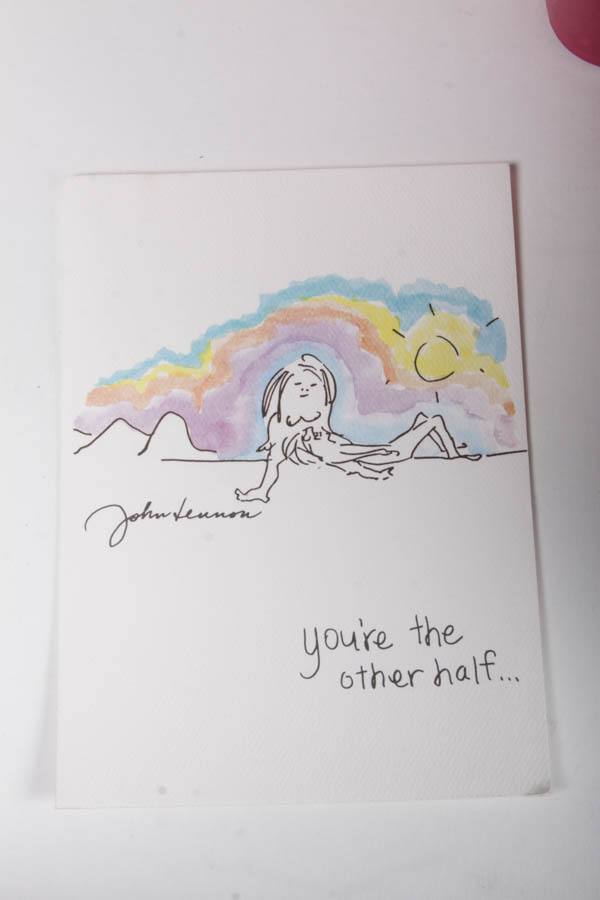 John Lennon
you're the
other half...